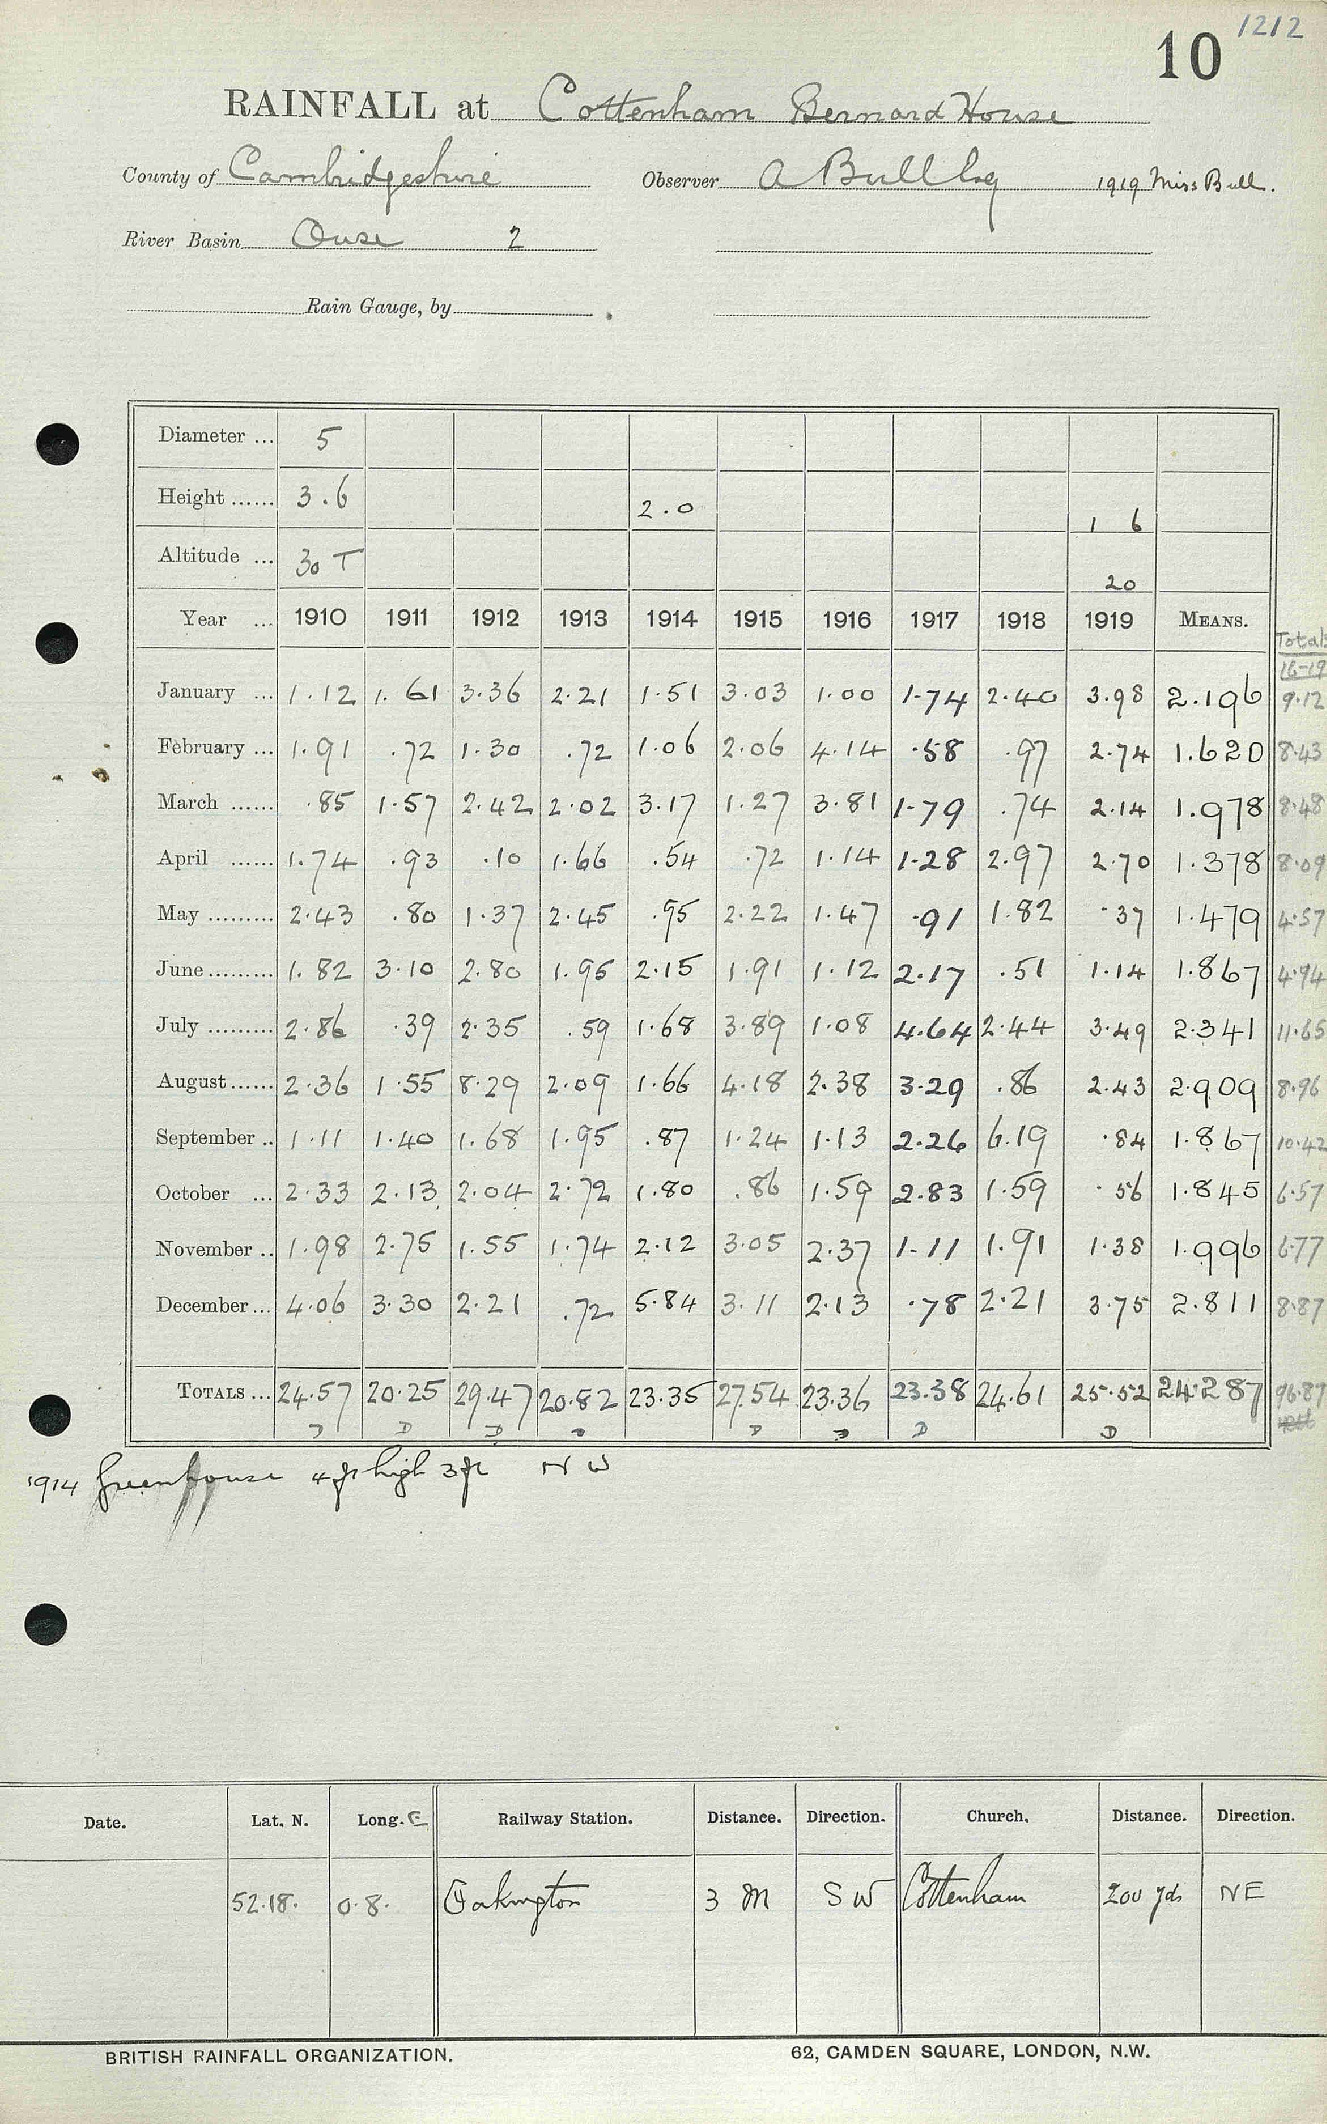 1212
10
RAINFALL at Cottenham Bernard House
County of Cambridgeshire Observer A Bull Esq 1919 Miss Bull.
River Basin Ouse 2
Rain Gauge, by
Diameter ... 5
Height ...... 3.6 2.0 1 6
Altitude ... 30 T 20
Year ... 1910 1911 1912 1913 1914 1915 1916 1917 1918 1919 MEANS. Total: 16-19
January ... 1.12 1.61 3.36 2.21 1.51 3.03 1.00 1.74 2.40 3.98 2.196 9.12
February ... 1.91 .72 1.30 .72 1.06 2.06 4.14 .58 .97 2.74 1.620 8.43
March ...... .85 1.57 2.42 2.02 3.17 1.27 3.81 1.79 .74 2.14 1.978 8.48
April ...... 1.74 .93 .10 1.66 .54 .72 1.14 1.28 2.97 2.70 1.378 8.09
May ......... 2.43 .80 1.37 2.45 .95 2.22 1.47 .91 1.82 .37 1.479 4.57
June ......... 1.82 3.10 2.80 1.95 2.15 1.91 1.12 2.17 .51 1.14 1.867 4.94
July ......... 2.86 .39 2.35 .59 1.68 3.89 1.08 4.64 2.44 3.49 2.341 11.65
August ...... 2.36 1.55 8.29 2.09 1.66 4.18 2.38 3.29 .86 2.43 2.909 8.96
September .. 1.11 1.40 1.68 1.95 .87 1.24 1.13 2.26 6.19 .84 1.867 10.42
October ... 2.33 2.13 2.04 2.72 1.80 .86 1.59 2.83 1.59 .56 1.845 6.57
November .. 1.98 2.75 1.55 1.74 2.12 3.05 2.37 1.11 1.91 1.38 1.996 6.77
December ... 4.06 3.30 2.21 .72 5.84 3.11 2.13 .78 2.21 3.75 2.811 8.87
TOTALS ... 24.57 20.25 29.47 20.82 23.35 27.54 23.36 23.38 24.61 25.52 24.287 96.87
D D D D D D D D
1914 Greenhouse 4 ft high 3 ft NW
Date. Lat. N. Long. E Railway Station. Distance. Direction. Church. Distance. Direction.
52.18. 0.8. Oakington 3 M SW Cottenham 200 yds NE
BRITISH RAINFALL ORGANIZATION. 62, CAMDEN SQUARE, LONDON, N.W.